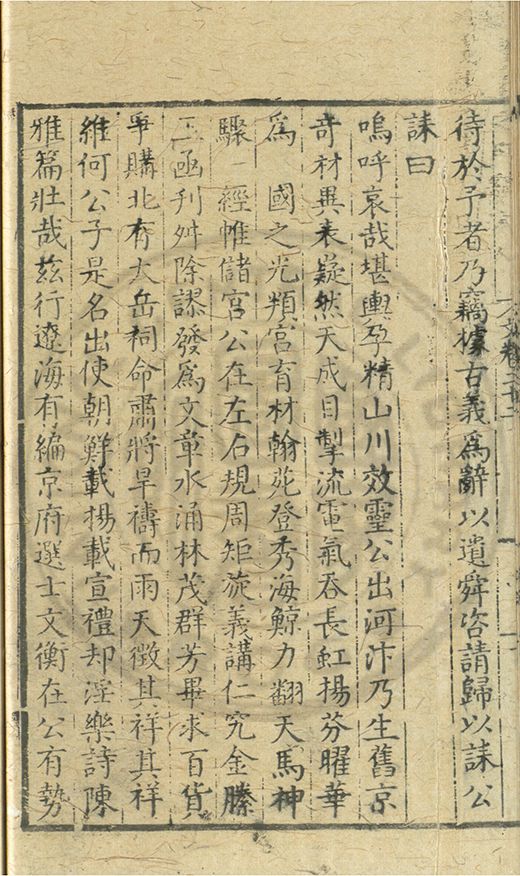 待於予者乃竊據古義為辭以遺舜咨請歸以誄公
誄曰
嗚呼哀哉堪輿孕精山川效靈公出河汴乃生舊京
奇材異表嶷然天成目掣流電氣吞長虹揚芬曜華
為 國之光頖宮育材翰苑登秀海鯨力翻天馬神
驟 經帷儲宮公在左右規周矩旋義講仁究金縢
玉函刋舛除謬發為文章水涌林茂群芳畢求百貨
爭購北有太岳祠命肅將旱禱而雨天徵其祥其祥
維何公子是名出使朝鮮載揚載宣禮却淫樂詩陳
雅篇壯哉茲行遼海有編京府選士文衡在公有勢